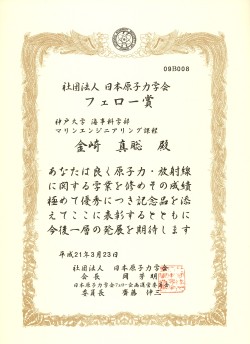 09B008
社団法人 日本原子力学会
フェロー賞
神戸大学 海事科学部
マリンエンジニアリング課程
金崎 真聡 殿
あなたは良く原子力・放射線
に関する学業を修めその成績
極めて優秀につき記念品を添
えてここに表彰するとともに
今後一層の発展を期待します
平成21年3月23日
社団法人 日本原子力学会
会長 岡 芳明
日本原子力学会フェロー企画運営委員会
委員長 齋藤 伸三